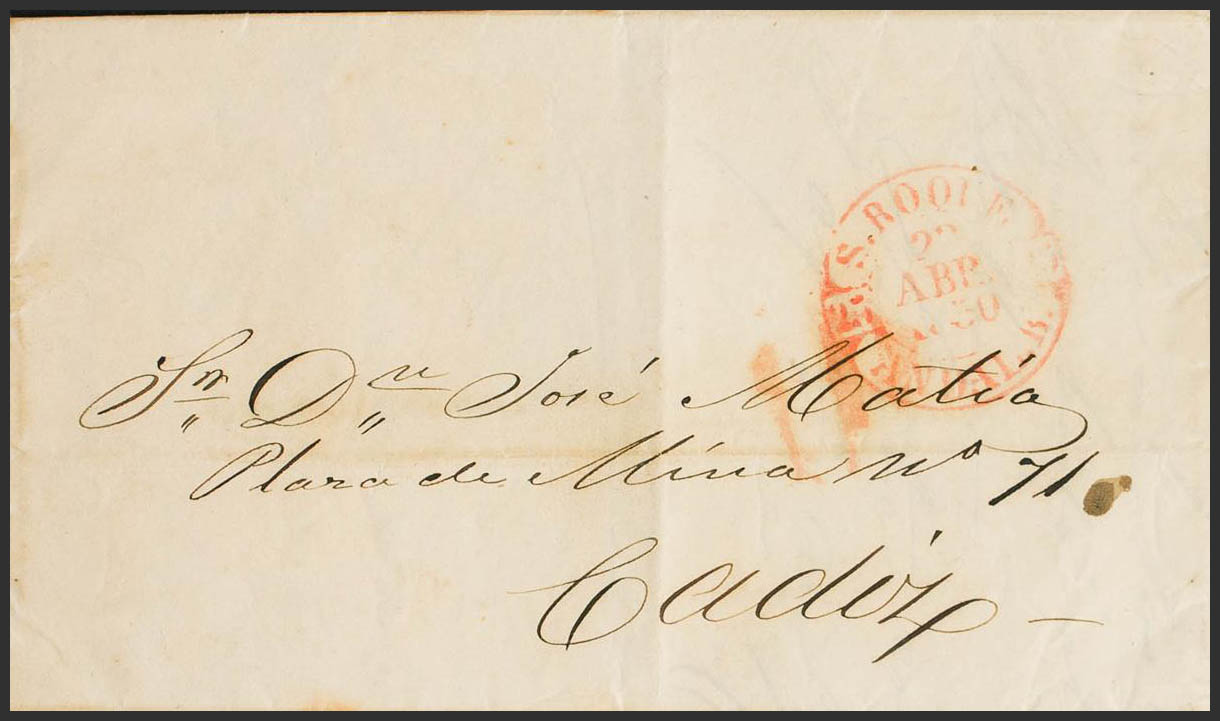 S. ROQUE.
ABR.
Sr. Dn. José Matia
Plaza de Mina No 71
Cadiz